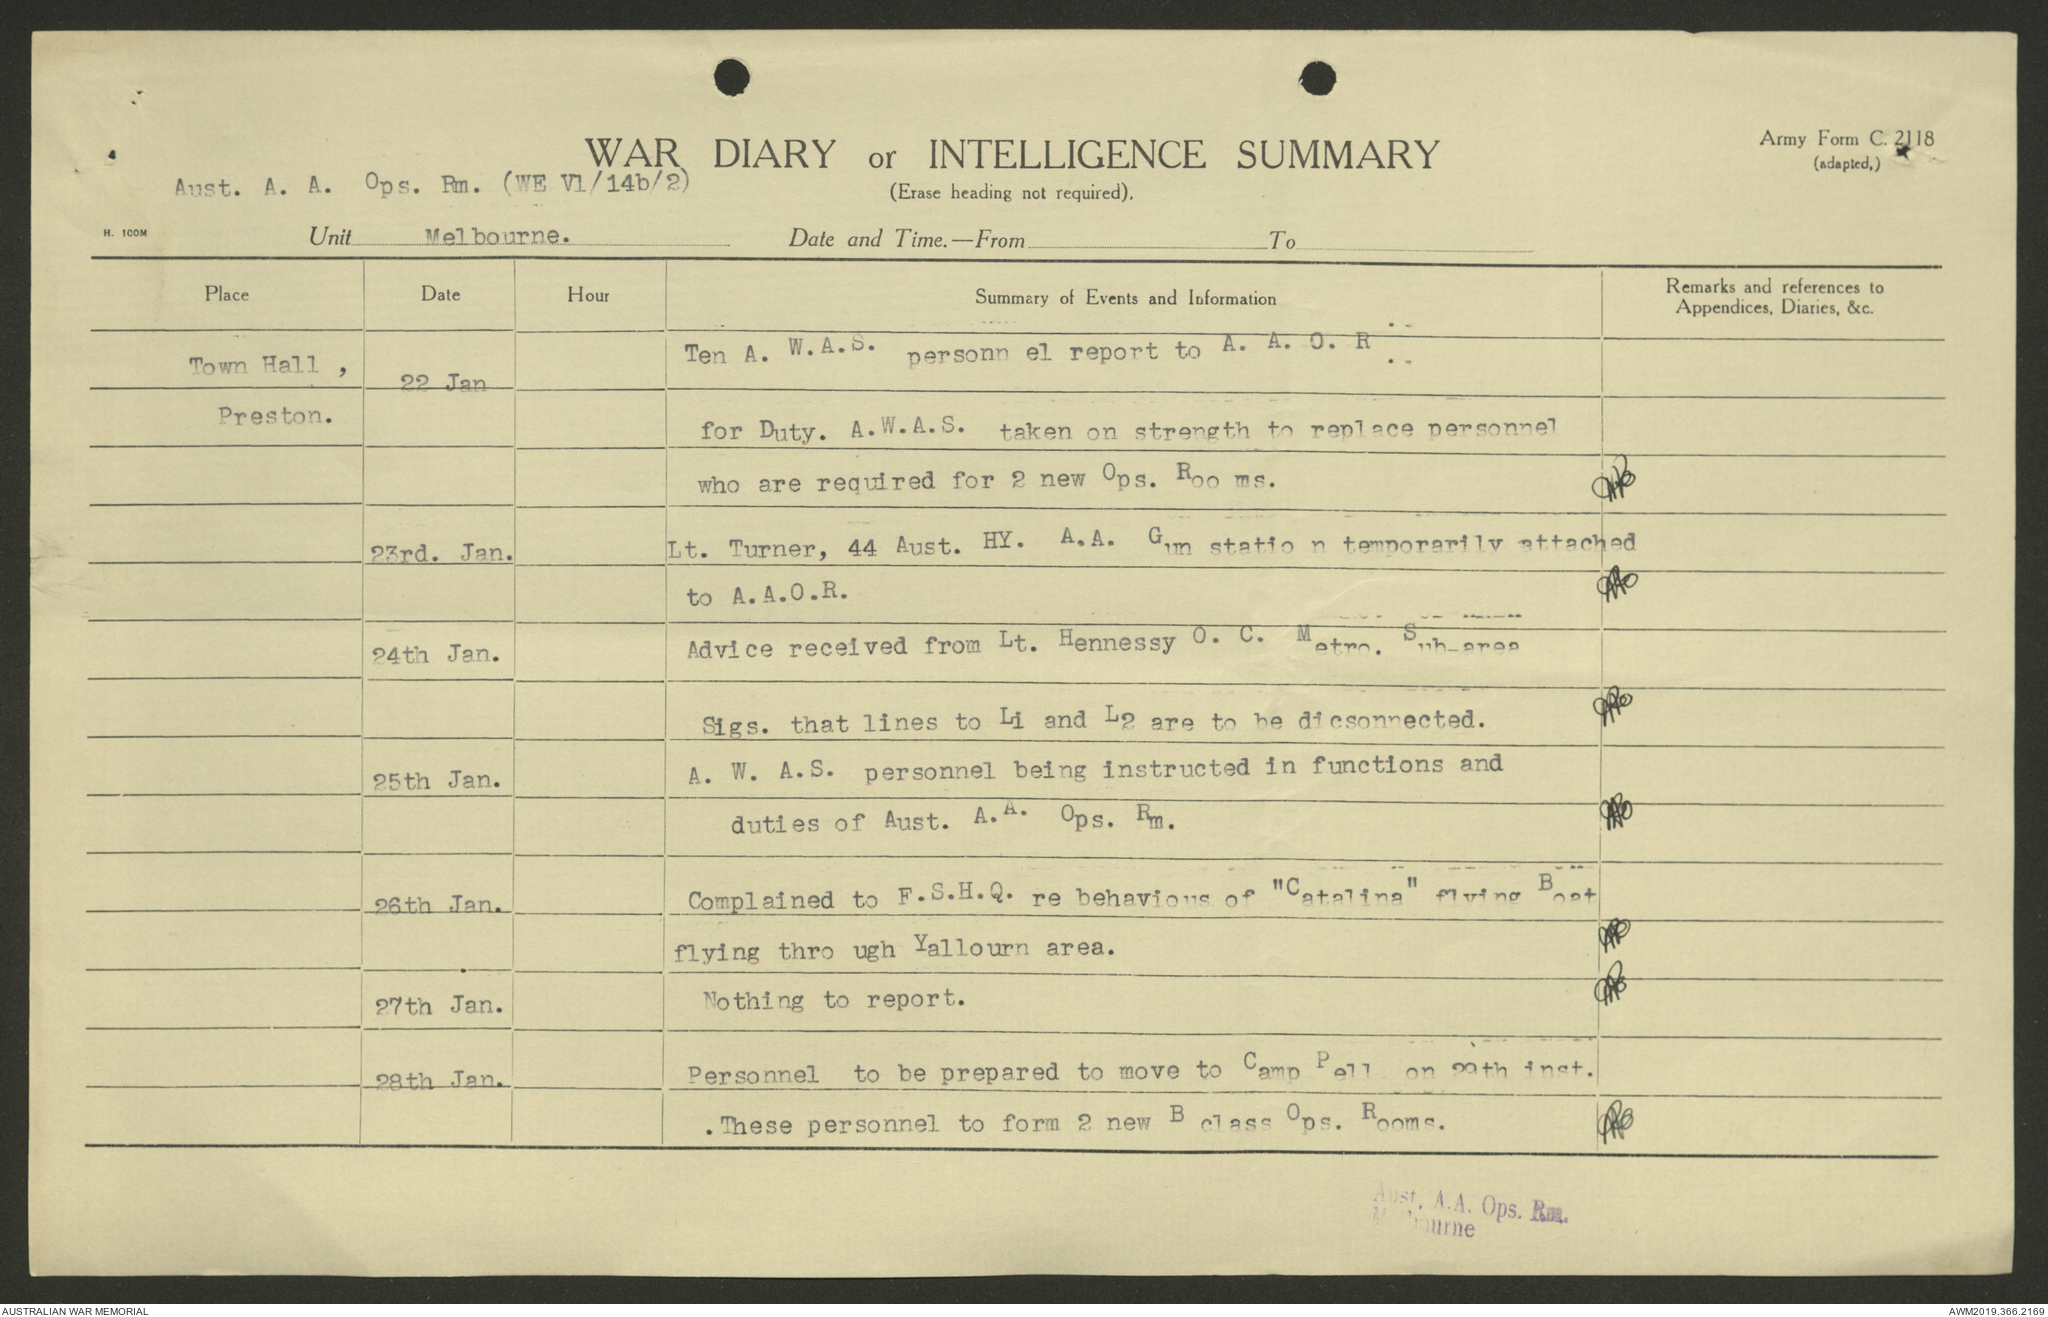 WAR DIARY or INTELLIGENCE SUMMARY
Army Form C. 2118
(adapted,)
Aust. A. A. Ops. Rm. (WE V1/14b/2)
(Erase heading not required).
H. 100M
Unit Melbourne. Date and Time.—From To
Place Date Hour Summary of Events and Information Remarks and references to
Appendices, Diaries, &c.
Town Hall , 22 Jan Ten A. W.A.S. personn el report to A. A. O. R
Preston. for Duty. A.W.A.S. taken on strength to replace personnel
who are required for 2 new Ops. Roo ms.
23rd. Jan. Lt. Turner, 44 Aust. HY. A.A. Gun statio n temporarily attached
to A.A.O.R.
24th Jan. Advice received from Lt. Hennessy O. C. Metro. Sub-area
Sigs. that lines to Li and L2 are to be dicsonnected.
25th Jan. A. W. A.S. personnel being instructed in functions and
duties of Aust. A.A. Ops. Rm.
26th Jan. Complained to F.S.H.Q. re behavious of "Catalina" flying Boat
flying thro ugh Yallourn area.
27th Jan. Nothing to report.
28th Jan. Personnel to be prepared to move to Camp Pell on 29th inst.
.These personnel to form 2 new B class Ops. Rooms.
Aust. A.A. Ops. Rm.
Melbourne
AUSTRALIAN WAR MEMORIAL
AWM2019.366.2169